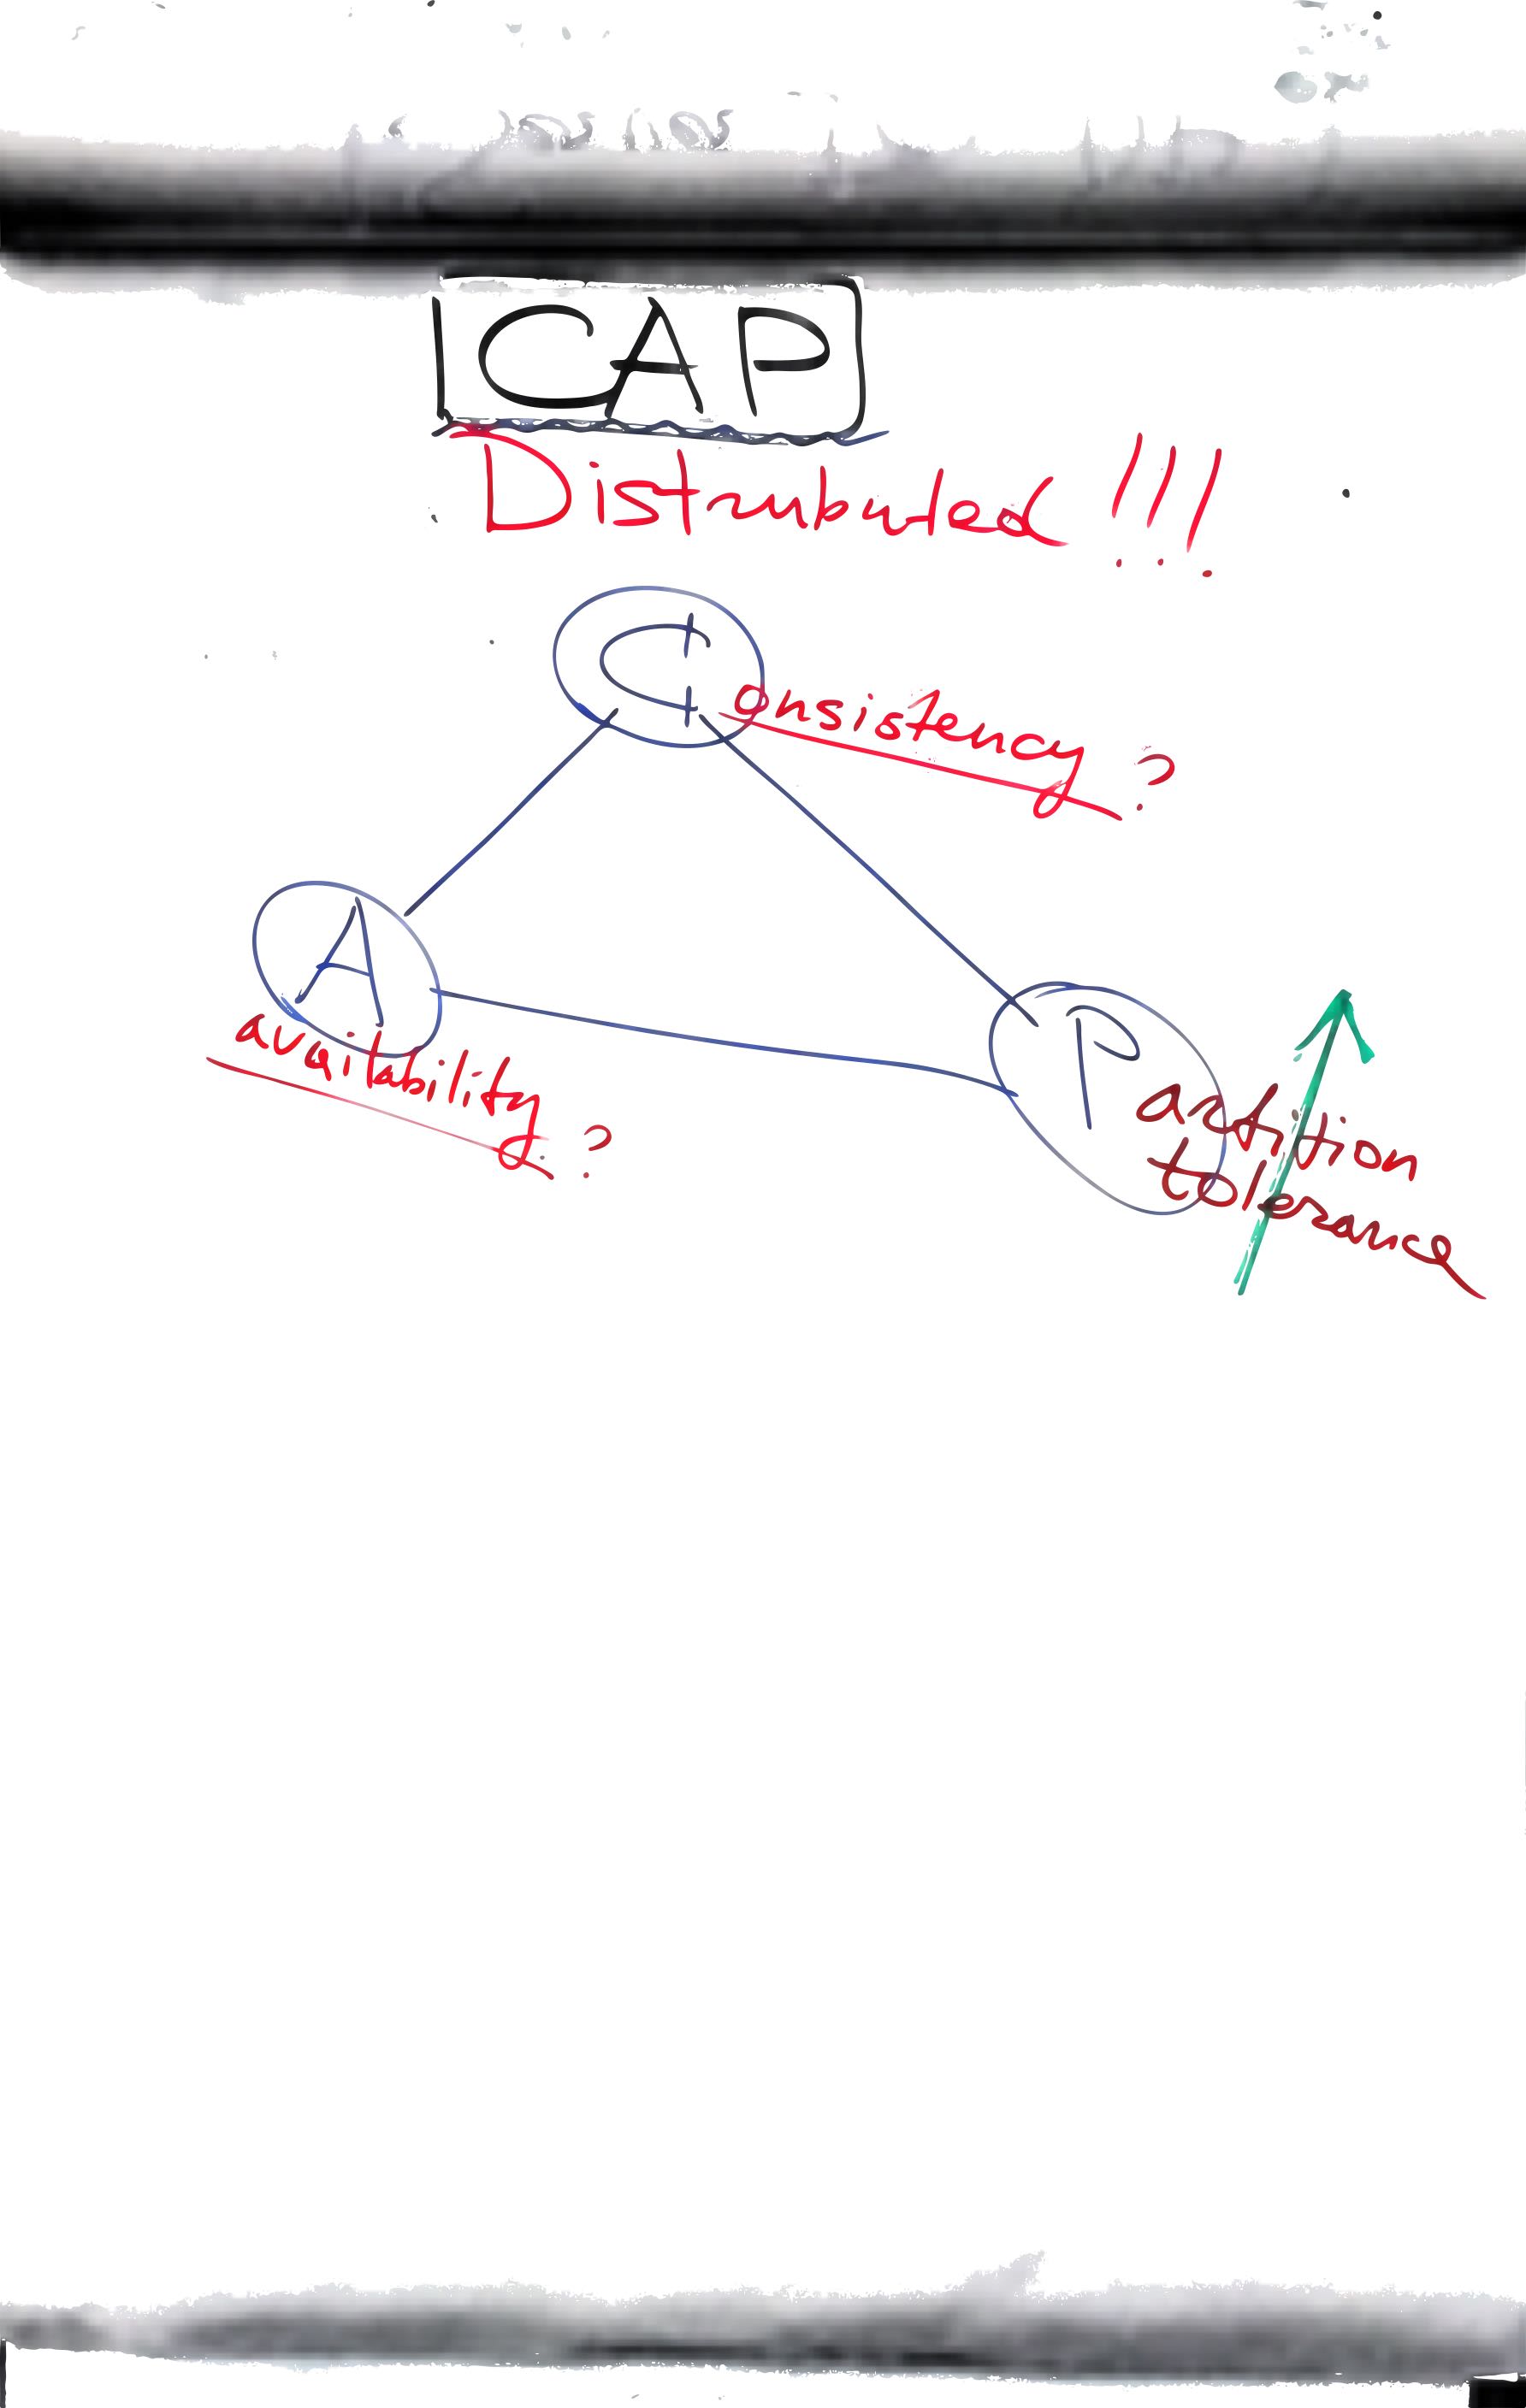 CAP
Distributed !!!
Consistency ?
Availability ?
Partition
tolerance